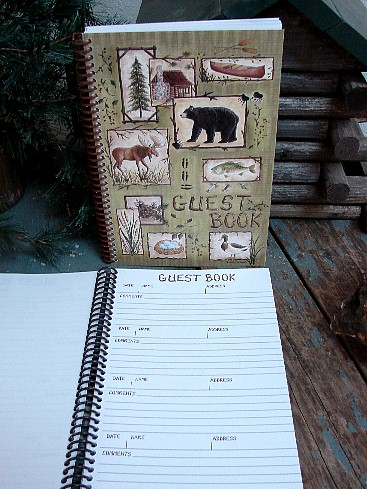 GUEST
BOOK
GUEST BOOK
DATE NAME ADDRESS
COMMENTS
DATE NAME ADDRESS
COMMENTS
DATE NAME ADDRESS
COMMENTS
DATE NAME ADDRESS
COMMENTS